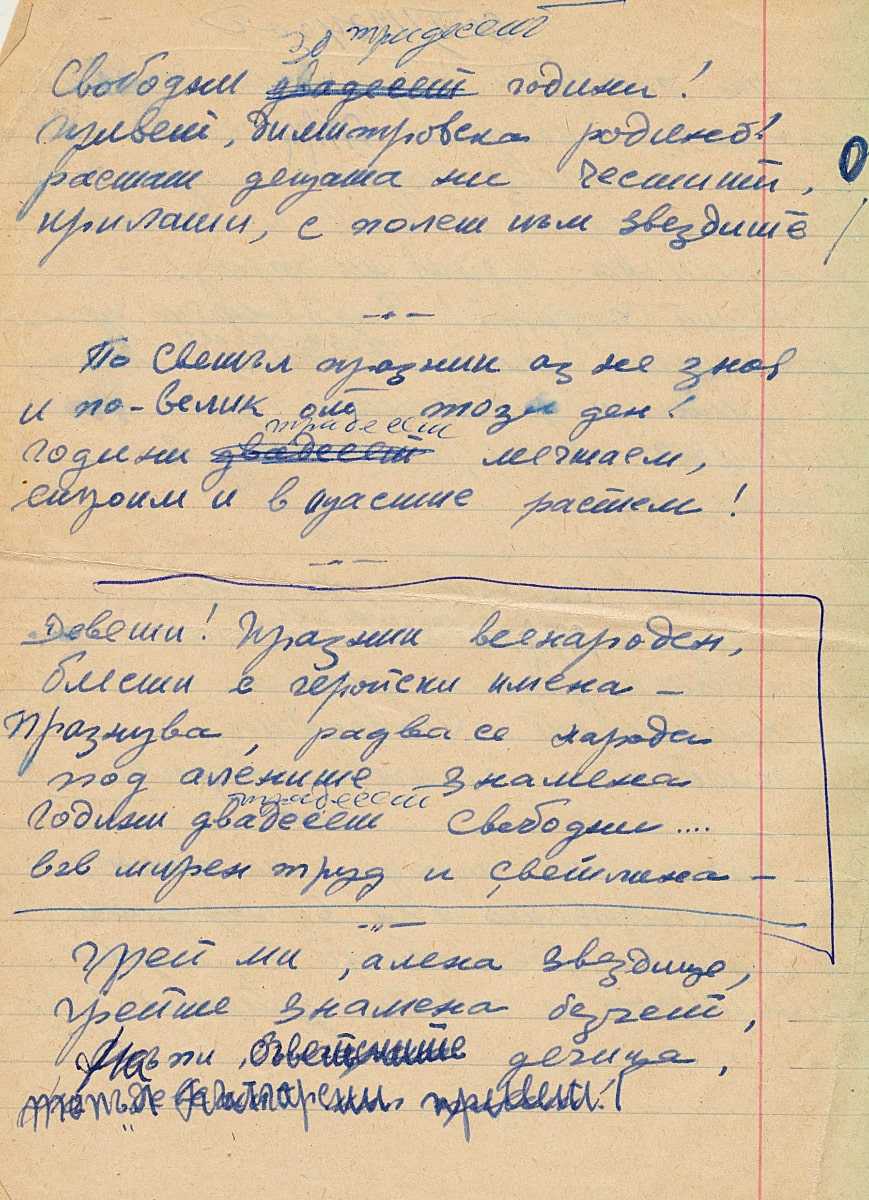 тридесет
Свободни двадесет години!
Привет, Димитровска родино!
растат децата ни честити,
крилати, с полет към звездите
По светъл празник аз не зная
и по-велик от този ден!
тридесет
години двадесет мечтаем,
строим и в щастие растем!
Девети! Празник всенароден,
блести с геройски имена –
Празнува, радва се народа
под алените знамена
тридесет
години двадесет свободни....
във мирен труд и светлина –
Грей ми, алена звездице,
грейте знамена безчет,
дечица,